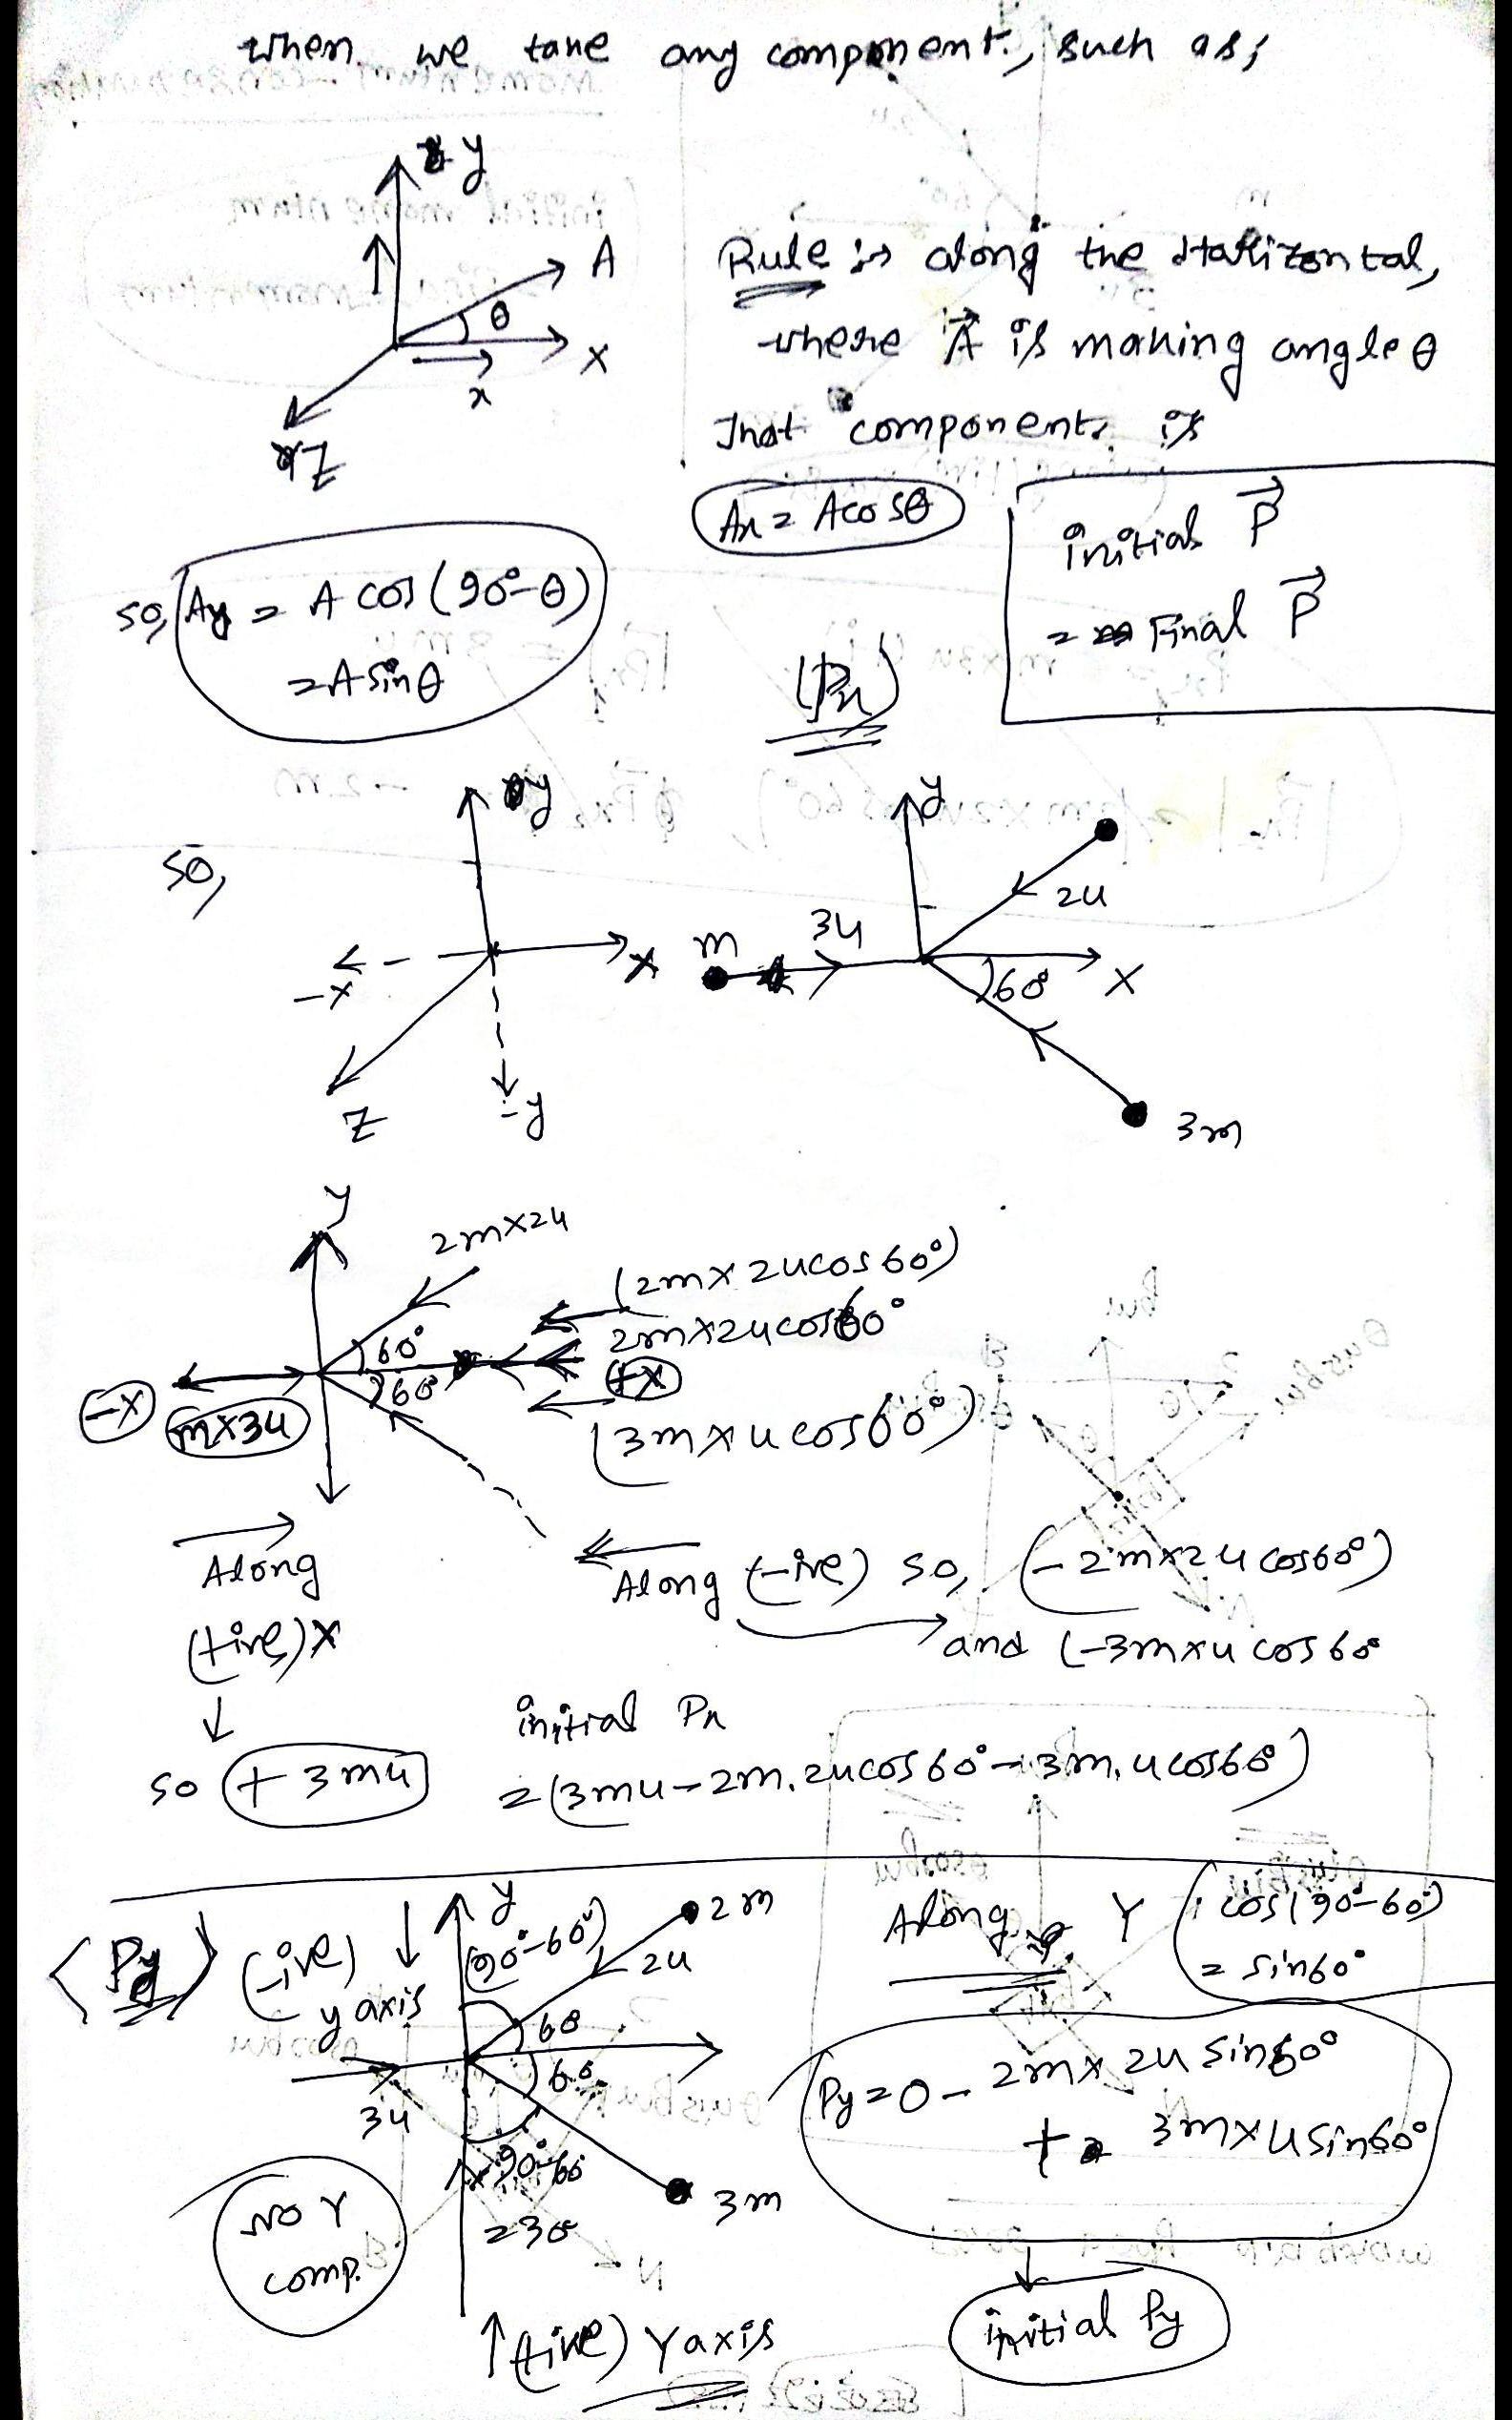 when we take any component, such as,
y
A
θ
X
x
Z
Rule :→ along the Horizontal,
where A⃗ is making angle θ
That component is
Ax = A cosθ
so, Ay = A cos(90°-θ)
= A sinθ
initial P⃗
= Final P⃗
(Px)
so,
y
X
-x
Z
-y
y
2u
m
3u
X
60°
3m
y
2m×2u
(2m×2ucos60°)
2m×2ucos60°
60°
60°
+x
-x
m×3u
(3m×ucos60°)
Along
(+ive)X
so + 3mu
Along (-ive) so, (-2m×2ucos60°)
and (-3m×ucos60°
initial Px
= (3mu-2m.2ucos60°-3m.ucos60°)
(Py)
(-ive)
y axis
y
(90°-60°)
2m
2u
60°
60°
3u
90°-60°
=30°
3m
No Y
comp.
↑(+ive) Y axis
Along Y
cos(90°-60°)
= sin60°
Py=0- 2m×2u sin60°
+ 3m×u sin60°
initial Py